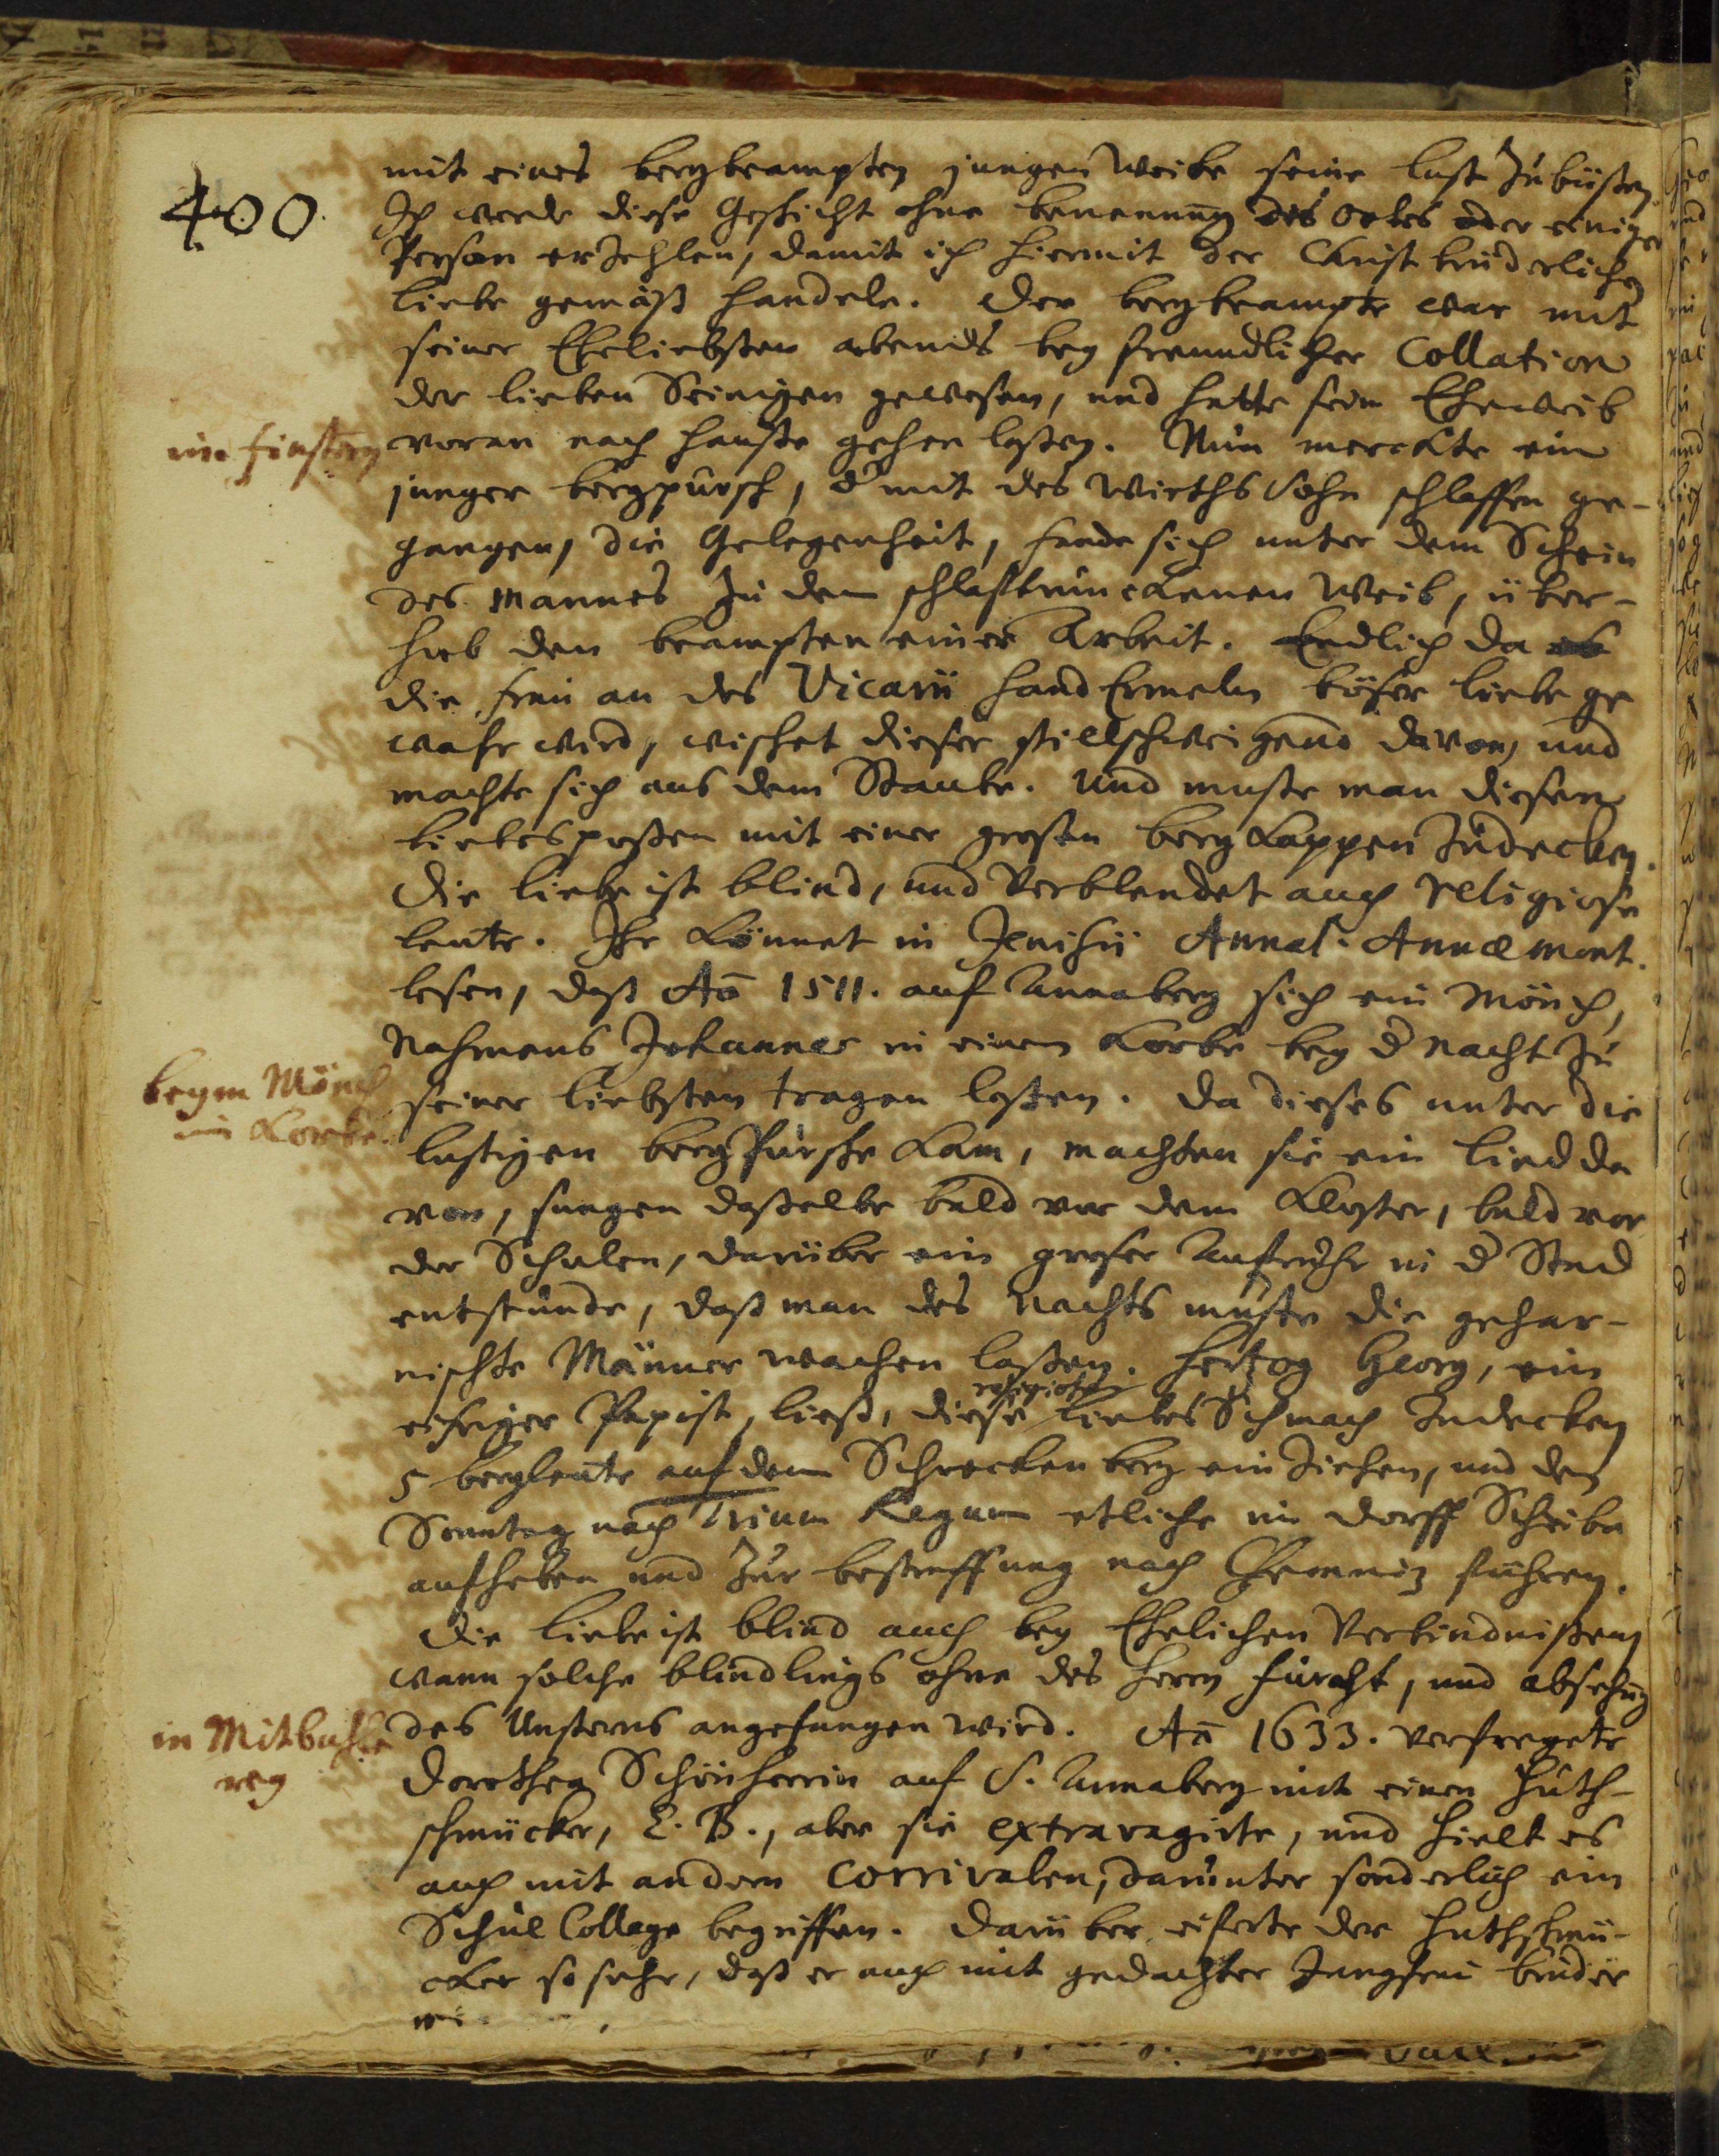 400
mit eines bergbeampten jungen Weibe seine lust zubüßen
Ich werde diese Geschicht ohne benennung des Ortes oder einiger
Person erzehlen, damit ich hiermit der Christ brüderlichen
liebe gemäß handele. Der bergbeampte war mit
seiner Eheliebsten abends bey freundlicher Collation
der lieben Seinigen gewesen, und hatte sein Eheweib
im finstern
voran nach hauße gehen laßen. Nun merckte ein
junger bergpursch, d mit des Wirths Sohn schlaffen ge-
gangen, die Gelegenheit, fande sich unter dem Schein
des Mannes zu dem schlaftrunckenen Weib, über-
hub den beampten einer Arbeit. Endlich da
die frau an des Vicarii hand Ermeln böser liebe ge
wahr wird, wischet dieser stillschweigend davon, und
machte sich aus dem Staube. Und muste man diesen
liebespoßen mit einer großen berg Kappen zudecken.
Die liebe ist blind, und verblendet auch religiose
leute. Ihr könnet in Jenisii Annal. Annæmont.
lesen, daß Aō 1511. auf Annaberg sich ein Mönch,
Nahmens Johannes in einem Korbe bey d Nacht zu
beym Mönch
im Korbe.
seiner liebsten tragen laßen. Da dieses unter die
lustigen bergPursche kam, machten sie ein lied da
von, sungen daßelbe bald vor dem Kloster, bald vor
der Schulen, darüber ein groser Aufruhr in d Stad
entstunde, daß man des Nachts muste die gehar-
nischte Männer wachen laßen. Hertzog Georg, ein
eifriger Papist, ließ, diese religiose liebes Schmach zudecken
5 bergleute auf dem Schrecken berg einziehen, und den
Sonntag nach Trium Regum etliche im dorff Scheibe
aufheben und zur bestraffung nach Chemnitz führen.
Die liebe ist blind auch bey Ehelichen Verbindnißen
wann solche blindlings ohne des Herrn furcht, und absehung
in Mitbuhle
rey
des Unsterns angefangen wird. Aō 1633. verfreyete
Dorothea Schönherrin auf S. Annaberg mit einen Huth-
schmücker, E. B., aber sie extravagirte, und hielt es
auch mit andern Corrivalen, darunter sonderlich ein
Schul College begriffen. Darüber eiferte der Huthschmü-
cker so sehr, daß er auch mit gedachter Jungfrau bruder